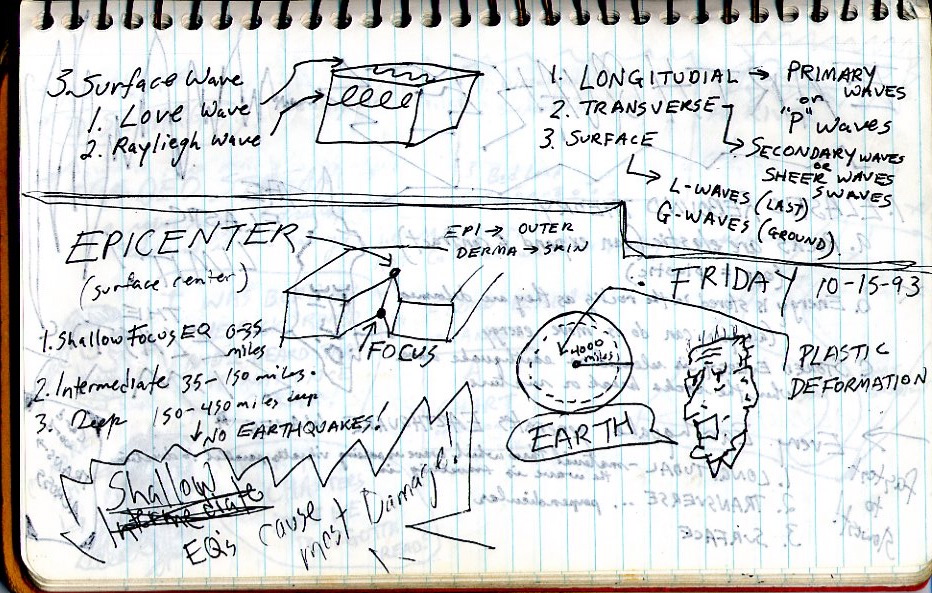 3. Surface Wave
1. Love Wave
2. Rayliegh Wave
1. LONGITUDIAL → PRIMARY WAVES
or
"P" Waves
2. TRANSVERSE
SECONDARY WAVES
or
SHEER WAVES
S WAVES
3. SURFACE
L-WAVES (LAST)
G-WAVES (GROUND)
EPICENTER
(surface center)
EPI → OUTER
DERMA → SKIN
FOCUS
1. Shallow Focus EQ 0-35
miles
2. Intermediate 35-150 miles.
3. Deep 150-450 miles deep
↓ NO EARTHQUAKES!
Shallow
Intermediate
EQ's cause
most Damage!
FRIDAY 10-15-93
4000
miles
EARTH
PLASTIC
DEFORMATION